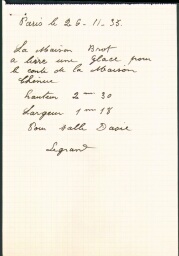 Paris le 26-11-35.
La Maison Brot
a livré une glace pour
le conte de la Maison
Chenue
hauteur 2 m 30
Largeur 1 m 18
Pour Salle Dacie
Legrand